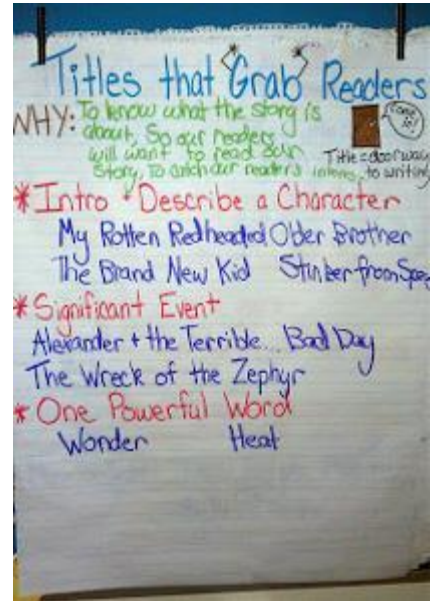 Titles that Grab Readers
WHY: To know what the story is
about, So our readers
will want to read our
story, To catch our reader's interest
Come in!
Title = doorway
to writing
* Intro + Describe a Character
My Rotten Redheaded Older Brother
The Brand New Kid Stinker from Space
* Significant Event
Alexander + the Terrible... Bad Day
The Wreck of the Zephyr
* One Powerful Word
Wonder Heat